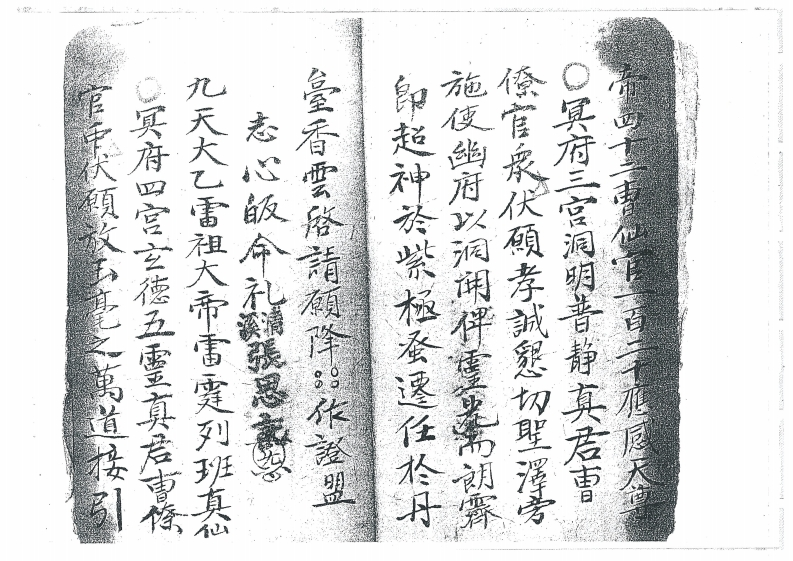 帝四十二曹仙官一百二十應感天尊
○冥府三宮洞明普静真君曹
僚官衆伏願孝誠懇切聖澤旁
施使幽府以洞開俾靈光而朗霽
即超神於紫極蚤遷任於丹
臺香雲啓請願降○○○作證盟
志心皈命礼清溪張思
九天大乙雷祖大帝雷霆列班真仙
○冥府四宮玄德五靈真君曹僚
官中伏願放玉毫之萬道接引